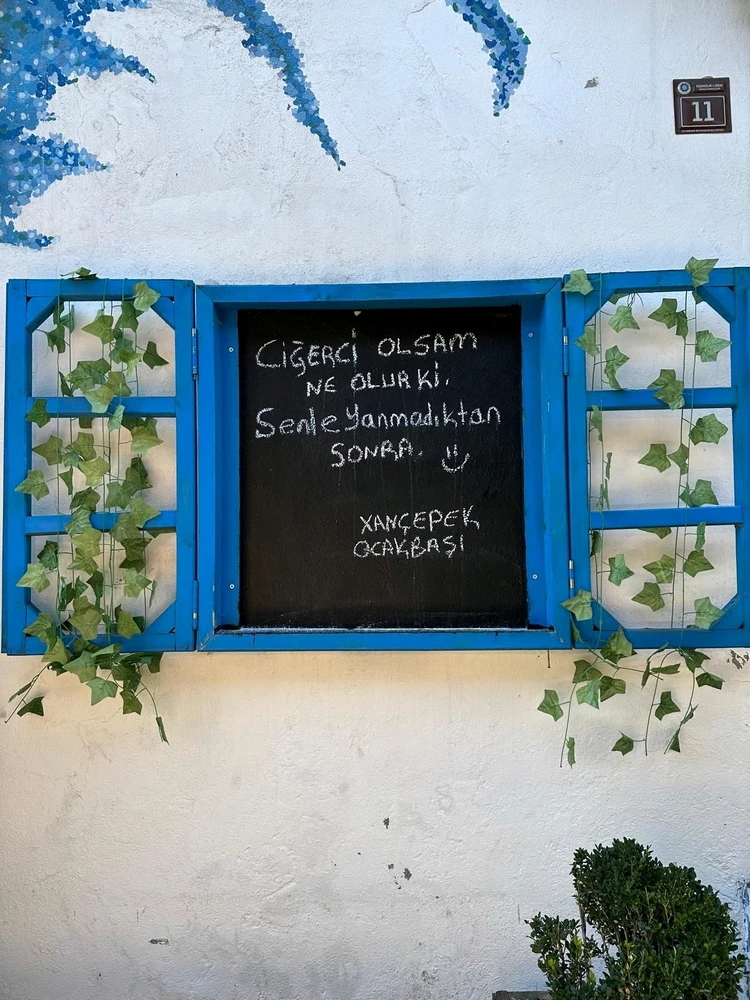 11
CiĞERCİ OLSAM
NE OLUR Kİ.
Senle Yanmadıktan
SONRA.
XANÇEPEK
OCAKBAŞI